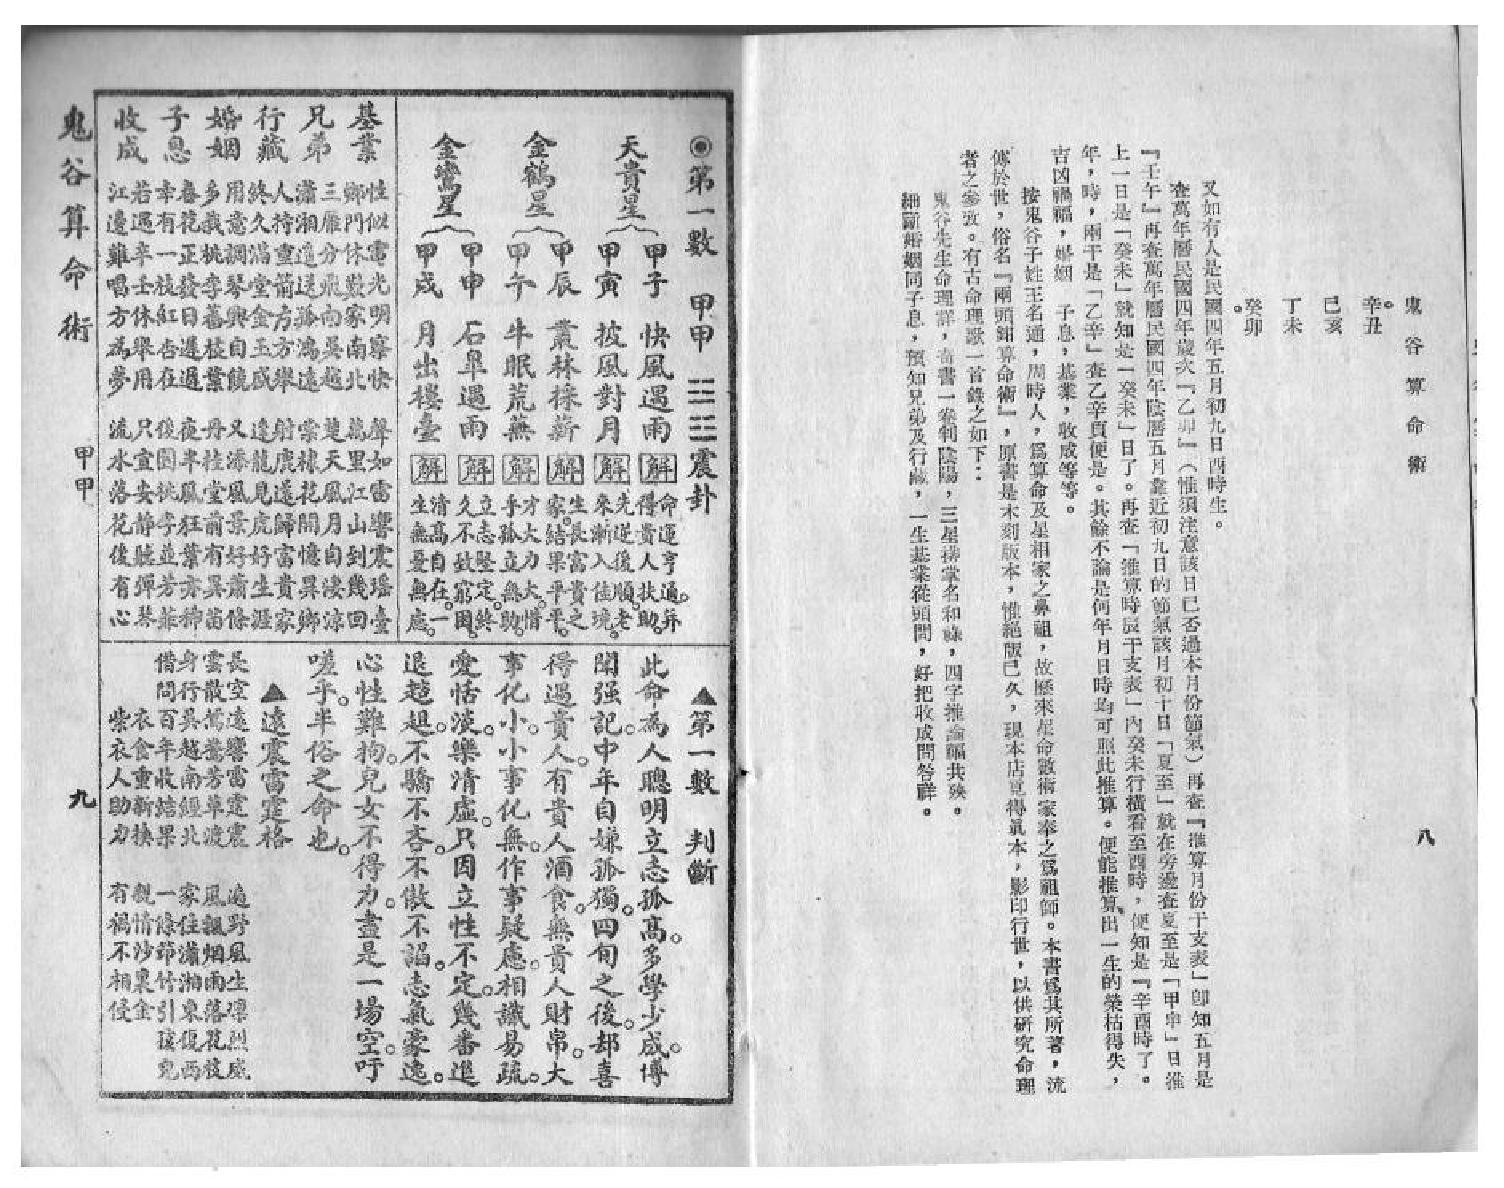 鬼谷算命術
八
辛丑。
己亥
丁未
癸卯。
又如有人是民國四年五月初九日酉時生。
查萬年曆民國四年歲次『乙卯』（惟須注意該日已否過本月份節氣）再查『推算月份干支表』卽知五月是
『壬午』再查萬年曆民國四年陰曆五月靠近初九日的節氣該月初十日「夏至」就在旁邊查夏至是「甲申」日推
上一日是「癸未」就知是「癸未」日了。再查「推算時辰干支表」內癸未行橫看至酉時，便知是『辛酉時了。
年，時，兩干是「乙辛」查乙辛頁便是。其餘不論是何年月日時均可照此推算。便能推算出一生的榮枯得失，
吉凶禍福，婚姻　子息，基業，收成等等。
按鬼谷子姓王名通，周時人，爲算命及星相家之鼻祖，故歷來星命數術家奉之爲祖師。本書爲其所著，流
傳於世，俗名『兩頭鉗算命術』，原書是木刻版本，惟絕版已久，現本店覓得眞本，影印行世，以供研究命理
者之參攷。有古命理歌一首錄之如下：
鬼谷先生命理詳，奇書一卷判陰陽，三星排掌名和祿，四字推論福共殃。
細斷婚姻同子息，預知兄弟及行藏，一生基業從頭問，好把收成問答祥。
◉第一數　甲甲　☳☳震卦
天貴星
甲子　快風遇雨　解　命運亨通。并得貴人扶助。
甲寅　披風對月　解　先逆後順。老來漸入佳境。
金鶴星
甲辰　叢林採薪　解　生長富貴之家。結果平平。
甲午　牛眠荒蕪　解　才大力大。惜手孤立無助。
金鸞星
甲申　石皐遇雨　解　立志堅定。終久不致窮困。
甲戌　月出樓臺　解　清高自在。一生無憂無慮。
基業　性似電光明察快　聲如雷響震瑤臺
鄉門休歎家南北　萬里江山到幾回
兄弟　三雁分飛向吳越　楚天風月自淒涼
瀟湘遥送孤鴻遠　棠棣花開憶異鄉
行藏　人持重箭方方舉　射鹿還歸富貴家
終久滿堂金玉成　逢龍見虎好生涯
婚姻　用意調琴興自饒　又添風景好蕭條
多栽桃李舊枝葉　丹桂堂前有異苗
子息　春花正發日遲遲　夜半風狂葉亦稀
幸有一枝紅杏在　後園桃李並芳菲
收成　若遇辛壬休舉用　只宜安靜聽彈琴
江邊難唱方爲夢　流水落花後有心
▲第一數　判斷
此命為人聰明立志孤高。多學少成。博
聞强記。中年自嫌孤獨。四旬之後。却喜
得過貴人。有貴人酒食。無貴人財帛。大
事化小。小事化無。作事疑慮。相識易疏。
愛恬淡。樂清虛。只因立性不定。幾番進
退趑趄。不驕不吝。不傲不諂。志氣豪逸。
心性難拘。兒女不得力。盡是一場空。吁
嗟乎。半俗之命也。
▲遠震雷霆格
長空遠響雷霆震　遍野風生凜烈威
雲散鴛鴦芳草渡　風飄烟雨落花枝
身行吳越南經北　家住瀟湘東復西
借問百年收結果　一條節竹引孩兒
衣食重新換　親情沙裏金
紫衣人助力　有禍不相侵
鬼谷算命術
甲甲
九